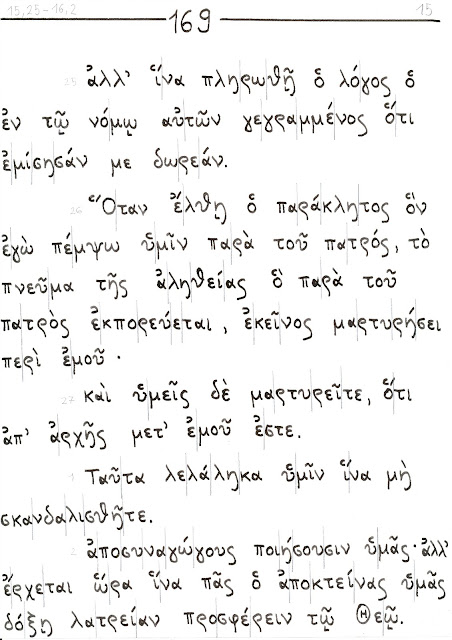 15,25-16,2 169 15
25 ἀλλ' ἵνα πληρωθῇ ὁ λόγος ὁ
ἐν τῷ νόμῳ αὐτῶν γεγραμμένος ὅτι
ἐμίσησάν με δωρεάν.
26 Ὅταν ἔλθῃ ὁ παράκλητος ὃν
ἐγὼ πέμψω ὑμῖν παρὰ τοῦ πατρός, τὸ
πνεῦμα τῆς ἀληθείας ὃ παρὰ τοῦ
πατρὸς ἐκπορεύεται, ἐκεῖνος μαρτυρήσει
περὶ ἐμοῦ ·
27 καὶ ὑμεῖς δὲ μαρτυρεῖτε, ὅτι
ἀπ' ἀρχῆς μετ' ἐμοῦ ἐστε.
1 Ταῦτα λελάληκα ὑμῖν ἵνα μὴ
σκανδαλισθῆτε.
2 ἀποσυναγώγους ποιήσουσιν ὑμᾶς· ἀλλ'
ἔρχεται ὥρα ἵνα πᾶς ὁ ἀποκτείνας ὑμᾶς
δόξῃ λατρείαν προσφέρειν τῷ Θεῷ.